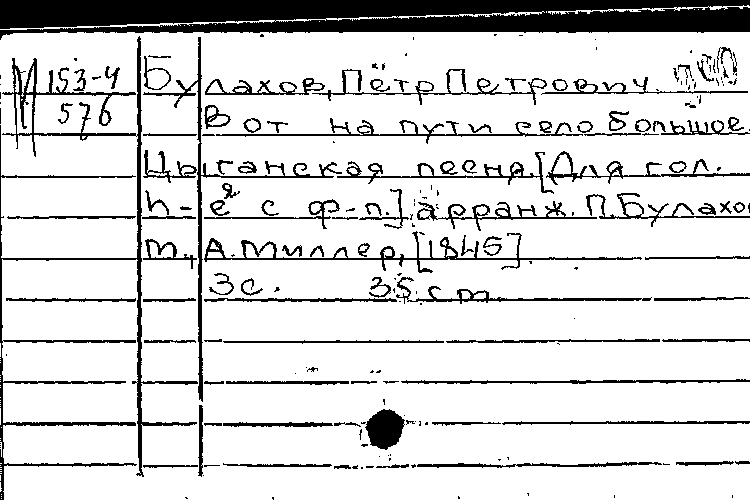 М 153-4 Булахов, Пётр Петрович.
576 Вот на пути село большое.
Цыганская песня. [Для гол.
h-e² с ф-п.] арранж. П. Булахо
м., А. Миллер, [1845].
3 с. 35 cm.